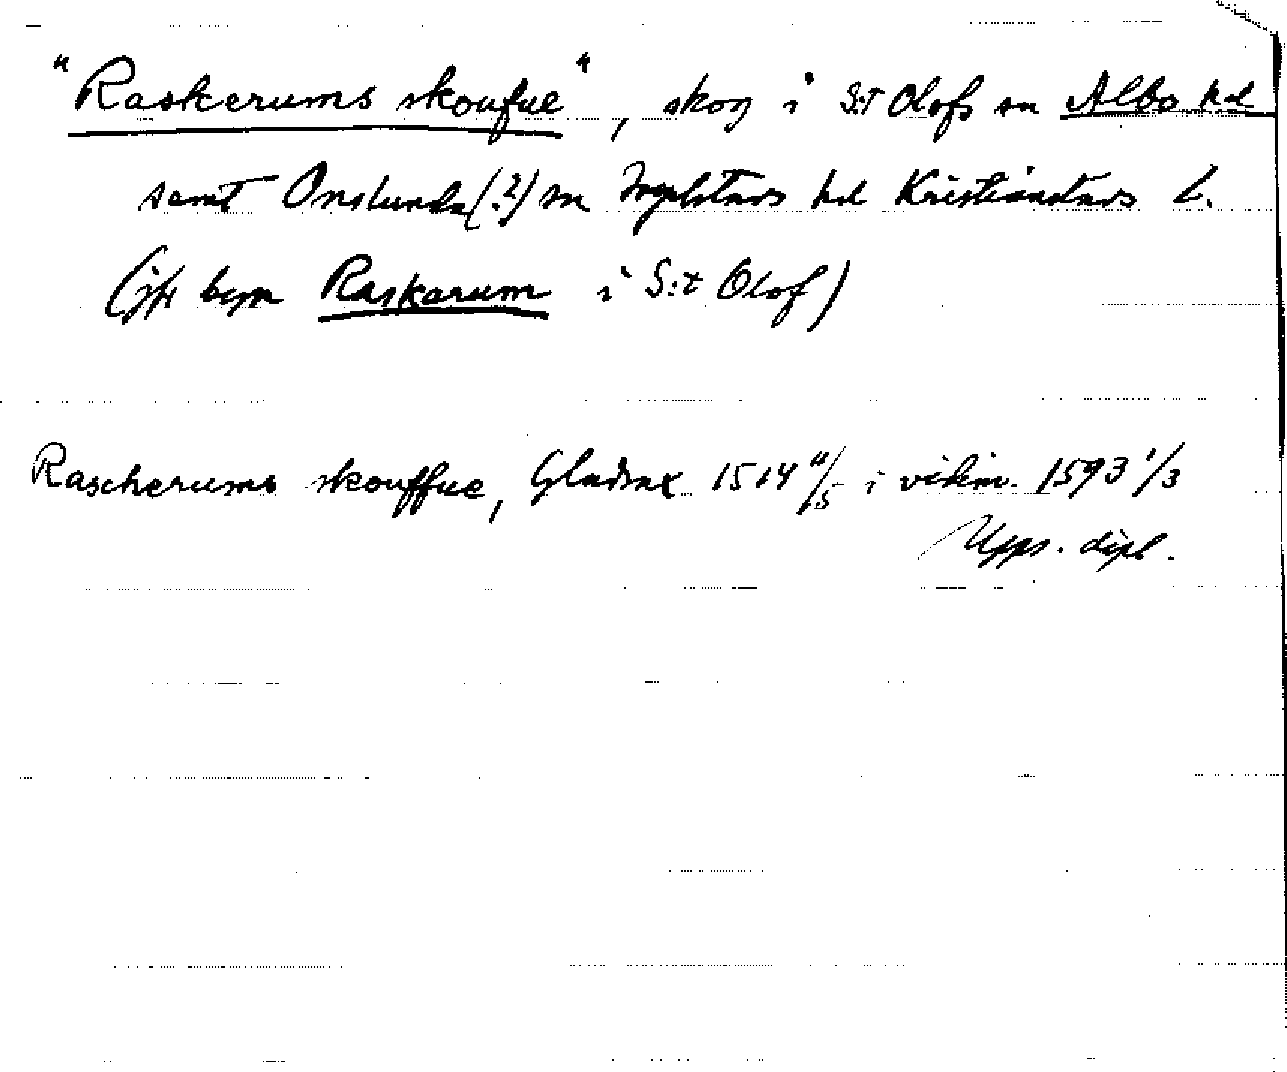 "Raskerums skoufue", skog i S:t Olofs sn Albo hd
samt Onslunda(?) sn Ingelstads hd Kristianstads l.
(jfr byn Raskarum i S:t Olof)
Rascherums skouffue, Gladsax 1514 11/5 i vidim. 1593 1/3
Upps. dipl.